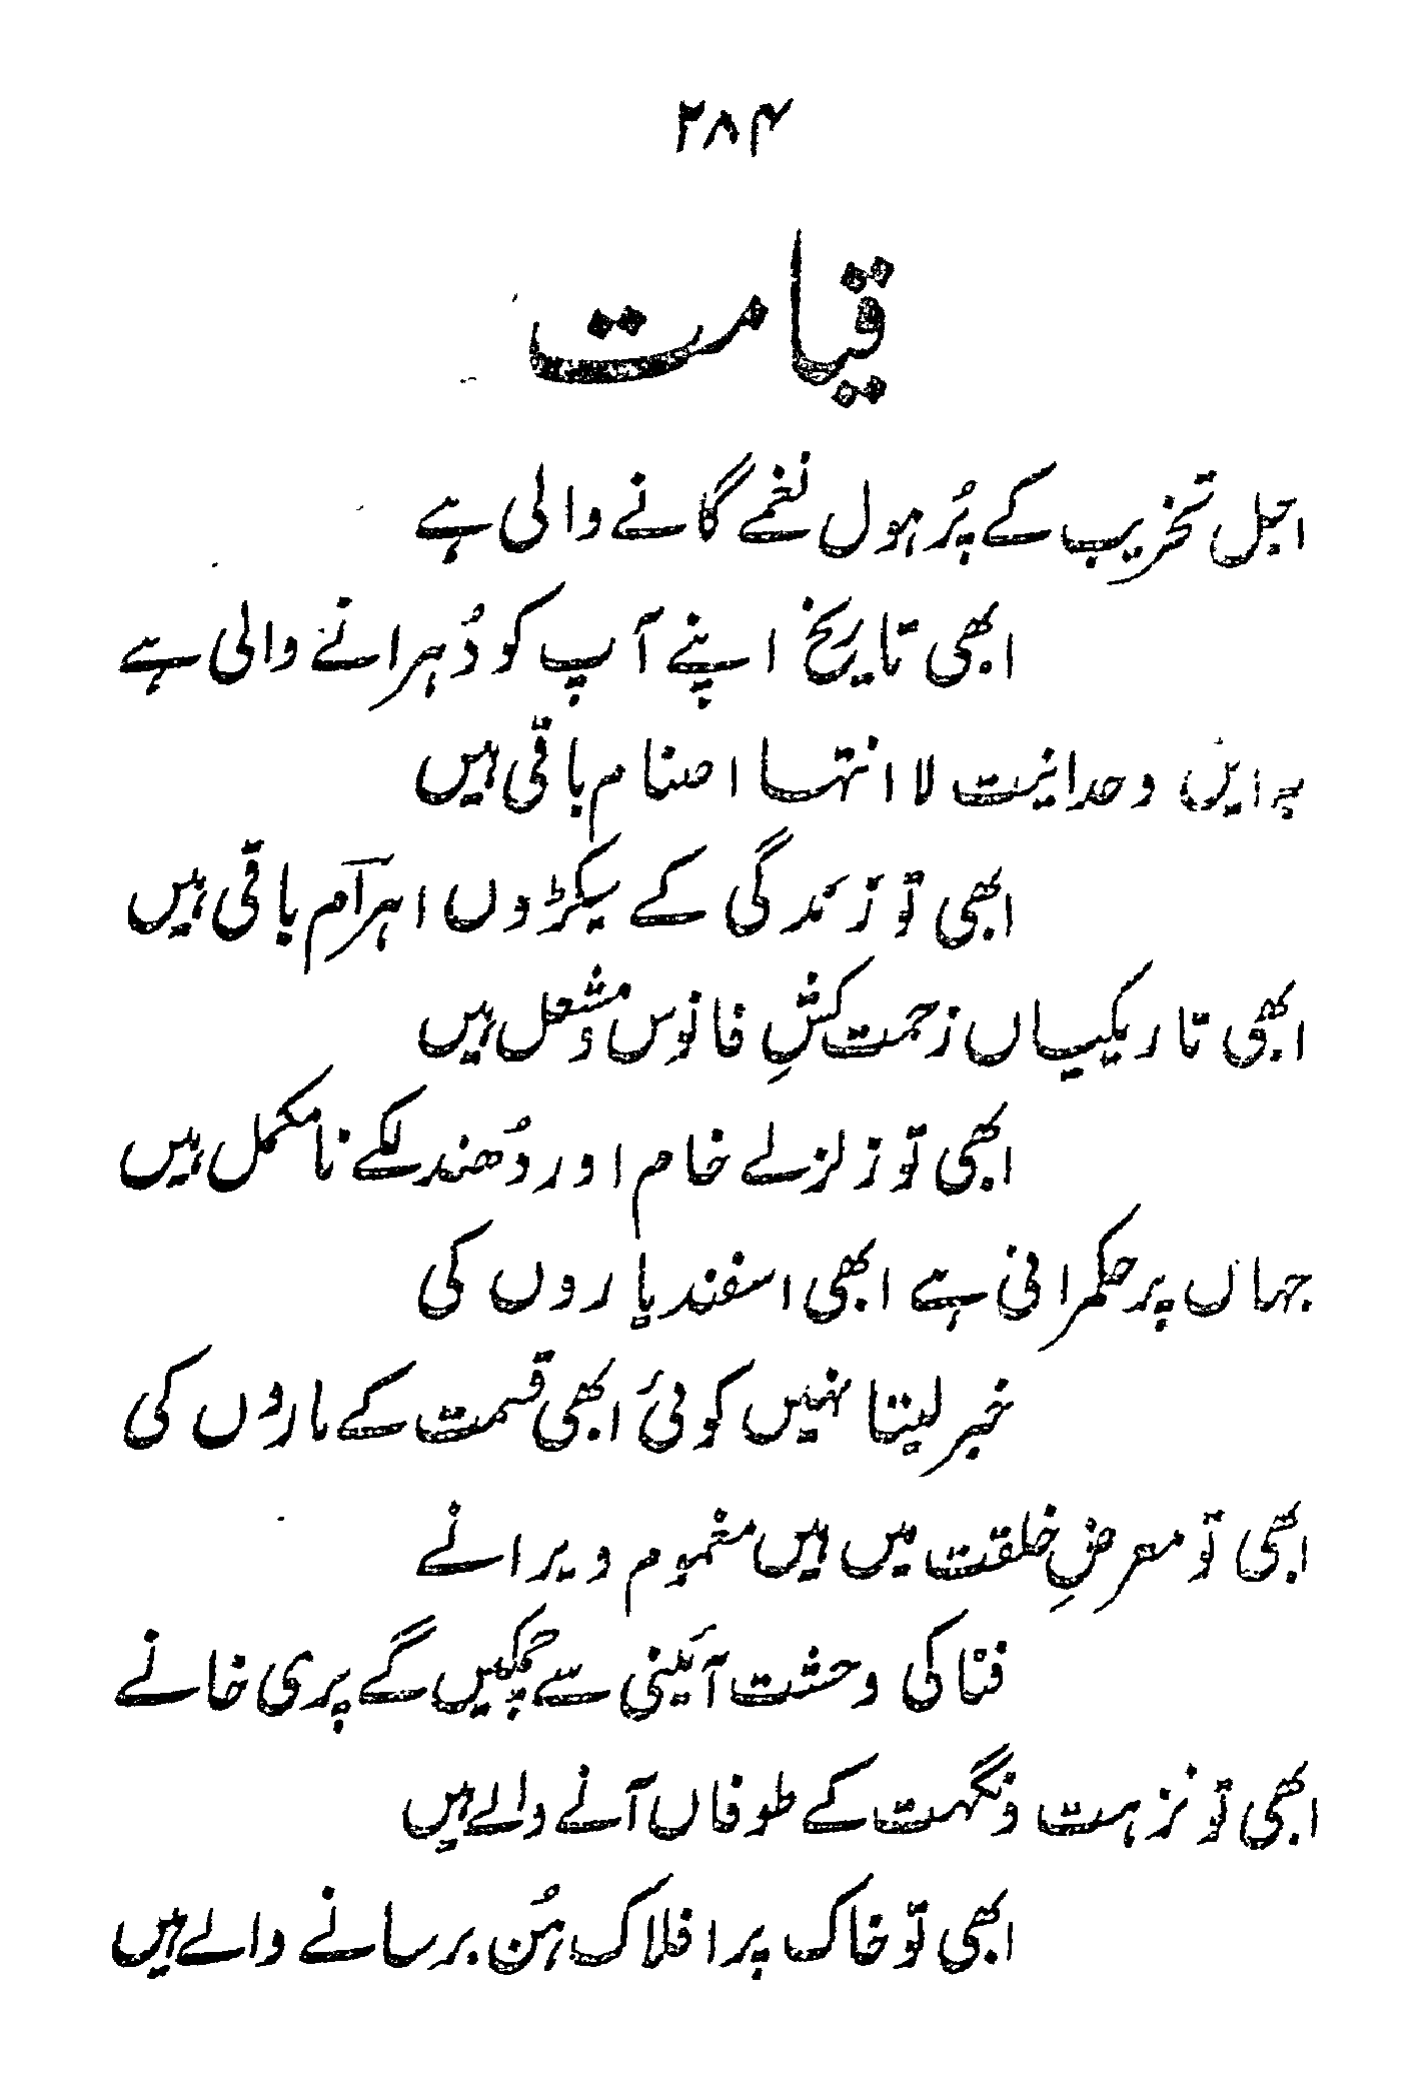 ۲۸۴
قیامت
اجل تخریب کے پُر ہول نغمے گانے والی ہے
ابھی تاریخ اپنے آپ کو دُہرانے والی ہے
بہ ایں وحدانیت لا انتہا اصنام باقی ہیں
ابھی تو زندگی کے سیکڑوں اہرام باقی ہیں
ابھی تاریکیاں زحمت کشِ فانوس و مشعل ہیں
ابھی تو زلزلے خام اور دُھندلکے نامکمل ہیں
جہاں پر حکمرانی ہے ابھی اسفندیاروں کی
خبر لیتا نہیں کوئی ابھی قسمت کے ماروں کی
ابھی تو معرضِ خلقت میں ہیں مغموم ویرانے
فنا کی وحشت آئینی سے چمکیں گے پری خانے
ابھی تو نزہت و نگہت کے طوفاں آنے والے ہیں
ابھی تو خاک پر افلاک ہُن برسانے والے ہیں